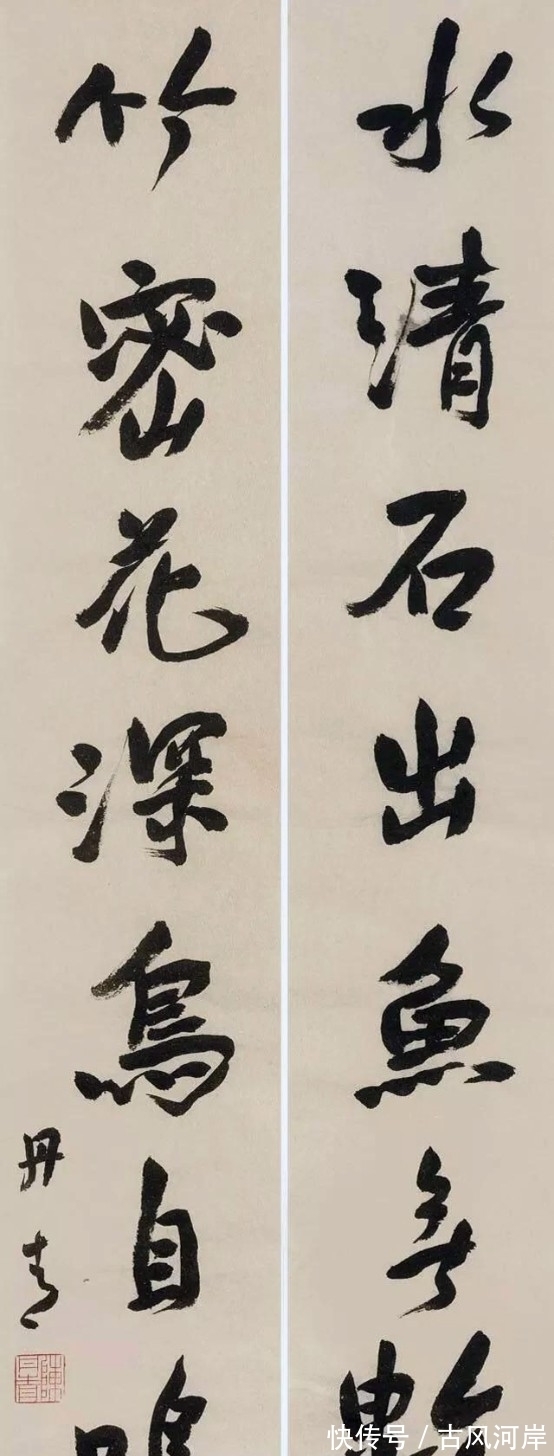 水清石出魚無數
竹密花深鳥自鳴
丹青
快传号 / 古风河岸